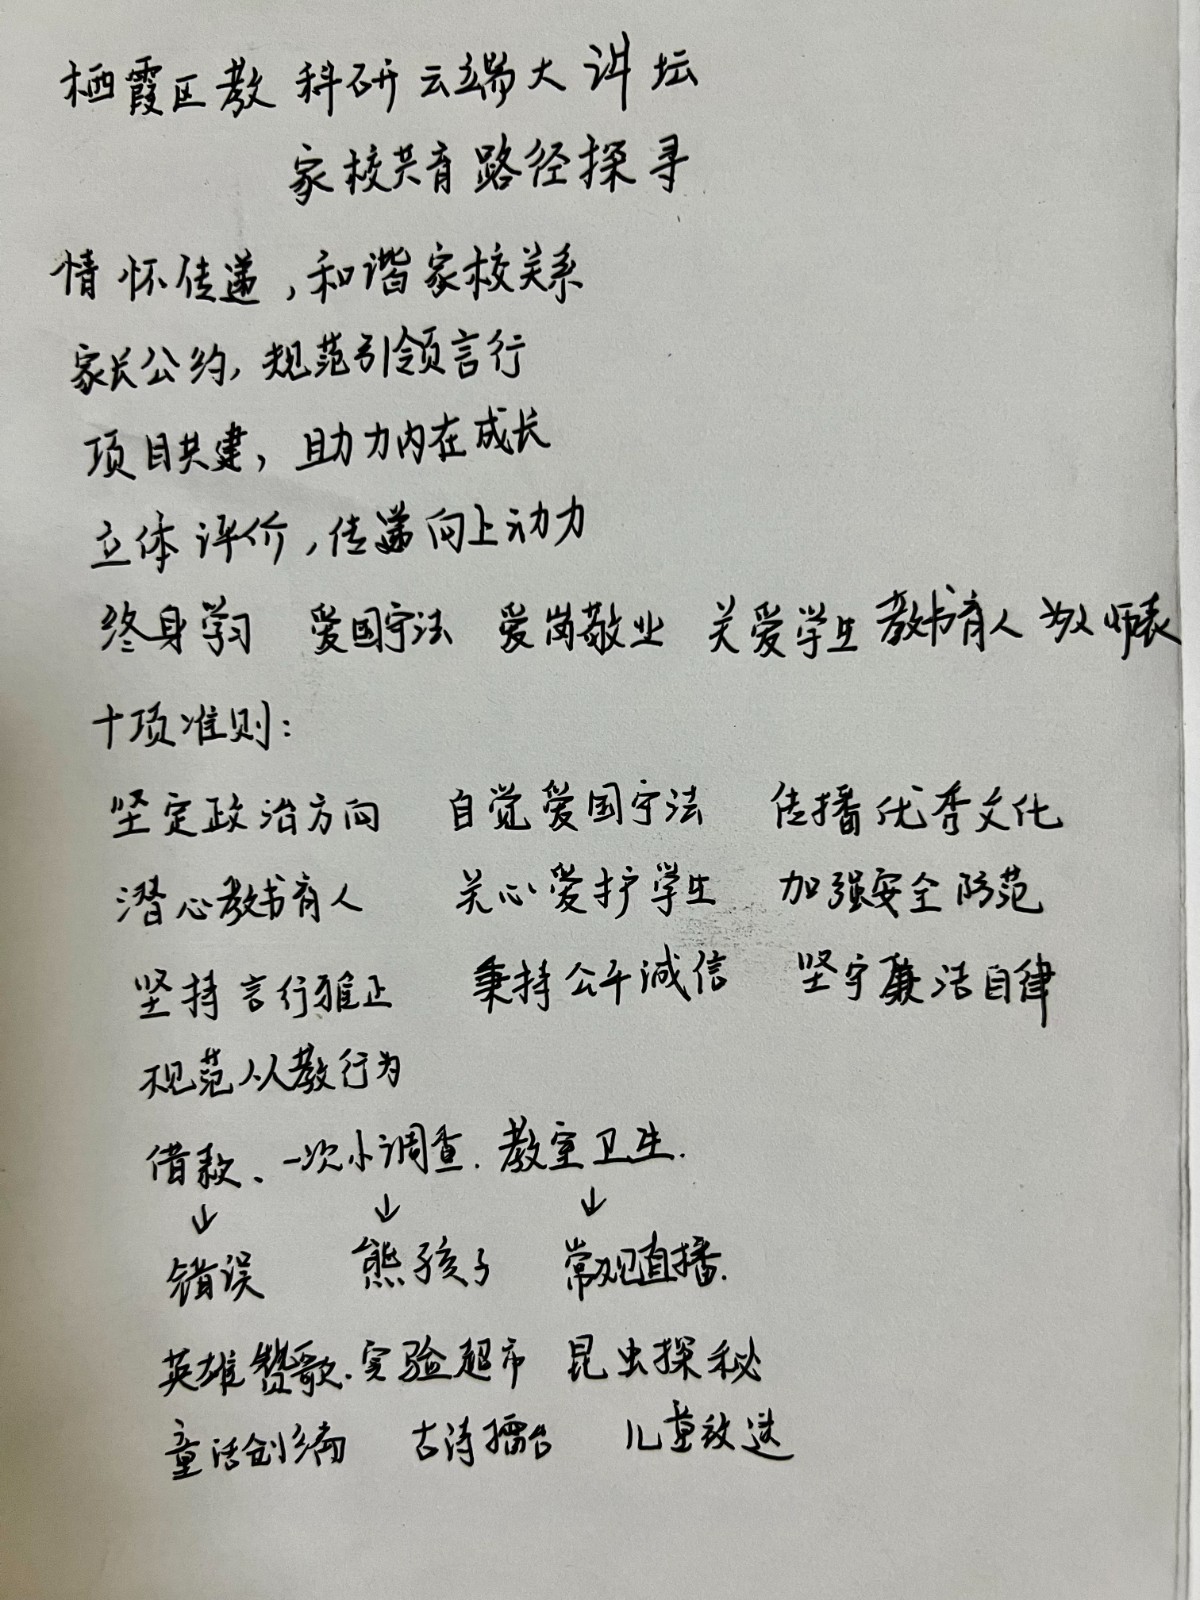 栖霞区教科研云端大讲坛
家校共育路径探寻
情怀传递，和谐家校关系
家长公约，规范引领言行
项目共建，助力内在成长
立体评价，传递向上动力
终身学习 爱国守法 爱岗敬业 关爱学生 教书育人 为人师表
十项准则：
坚定政治方向 自觉爱国守法 传播优秀文化
潜心教书育人 关心爱护学生 加强安全防范
坚持言行雅正 秉持公平诚信 坚守廉洁自律
规范从教行为
借款、一次小调查.教室卫生.
↓ ↓ ↓
错误 熊孩子 常规直播.
英雄赞歌.实验超市 昆虫探秘
童话创编 古诗擂台 儿童放送